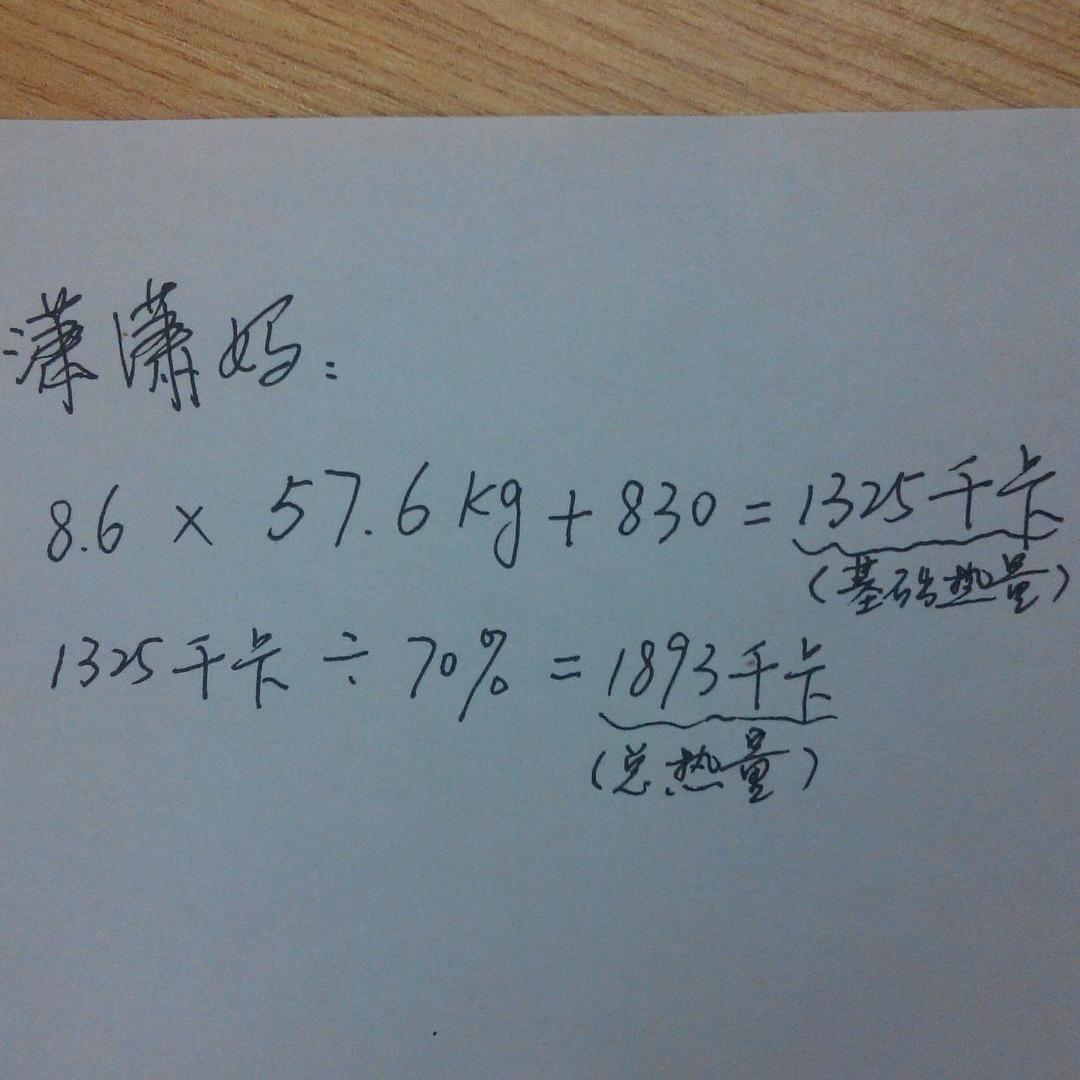 潇潇妈：
8.6 × 57.6kg + 830 = 1325千卡
（基础热量）
1325千卡 ÷ 70% = 1893千卡
（总热量）